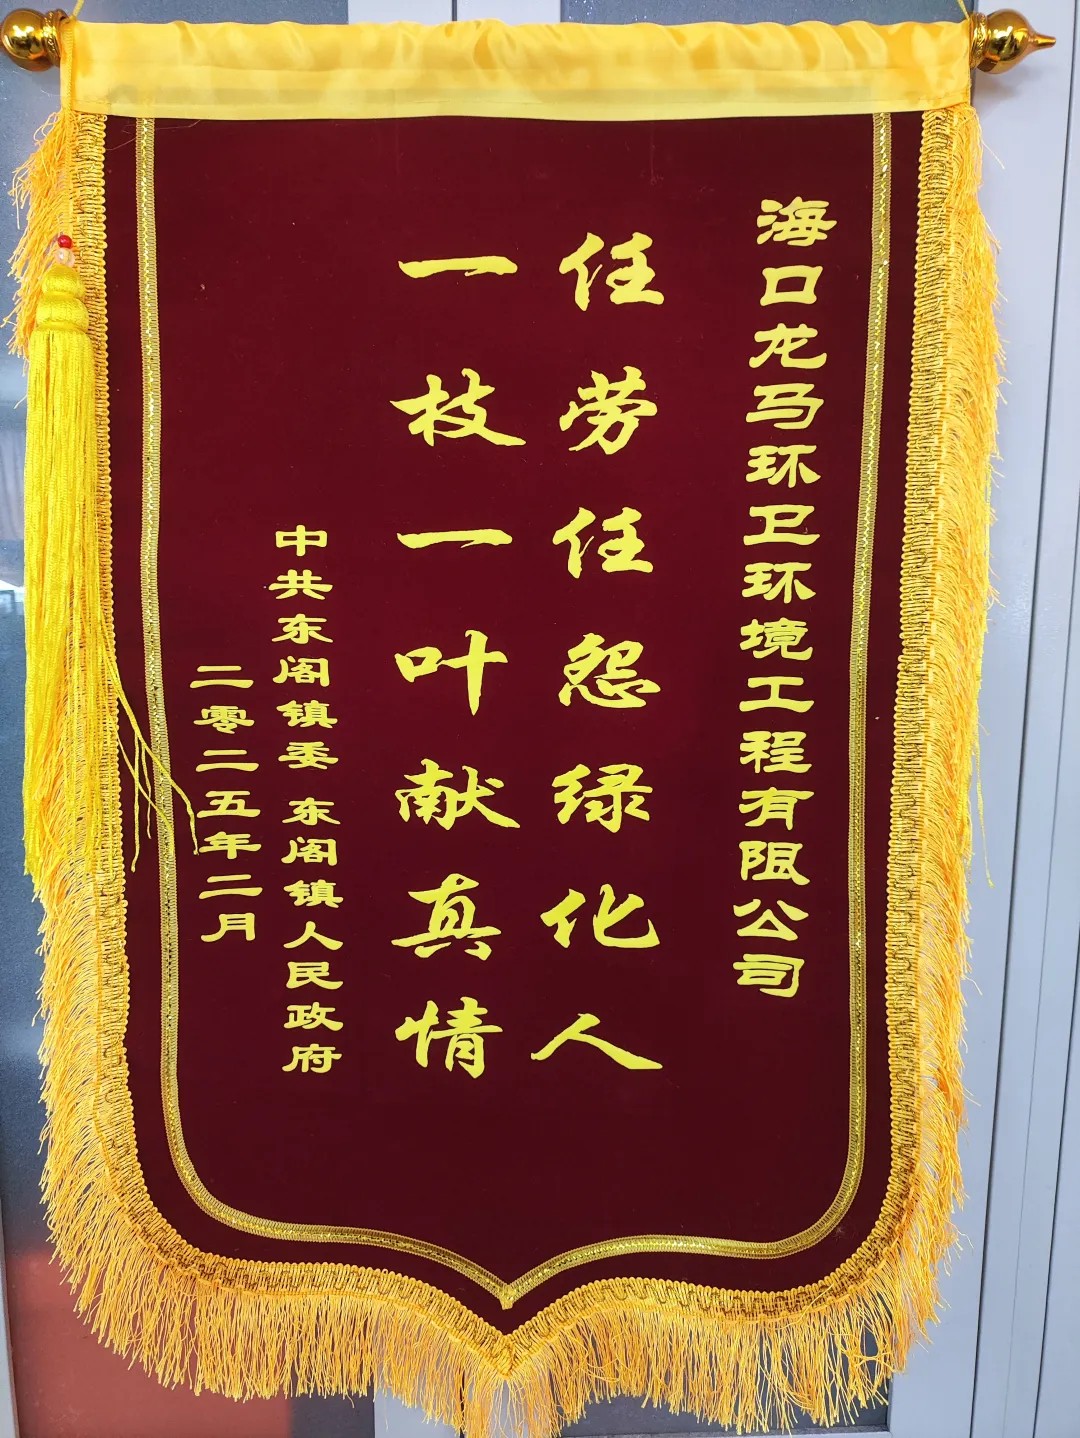 海口龙马环卫环境工程有限公司
任劳任怨绿化人
一枝一叶献真情
中共东阁镇委 东阁镇人民政府
二零二五年二月